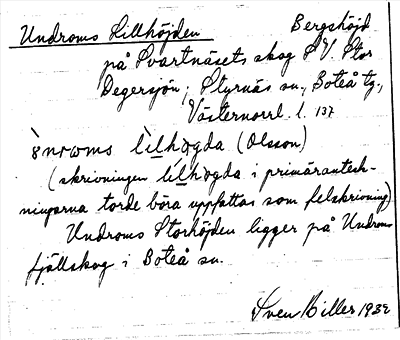 Undroms Lillhöjden Bergshöjd
på Svartnäsets skog S.V. Stor
Degersjön, Styrnäs sn, Boteå tg,
Västernorrl. l. 137
lìlhøgda (Olsson)
(skrivningen lílhøgda i primäranteck-
ningarna torde böra uppfattas som felskrivning)
Undroms Storhöjden ligger på Undroms
fjällskog i Boteå sn.
Sven Hiller 1932